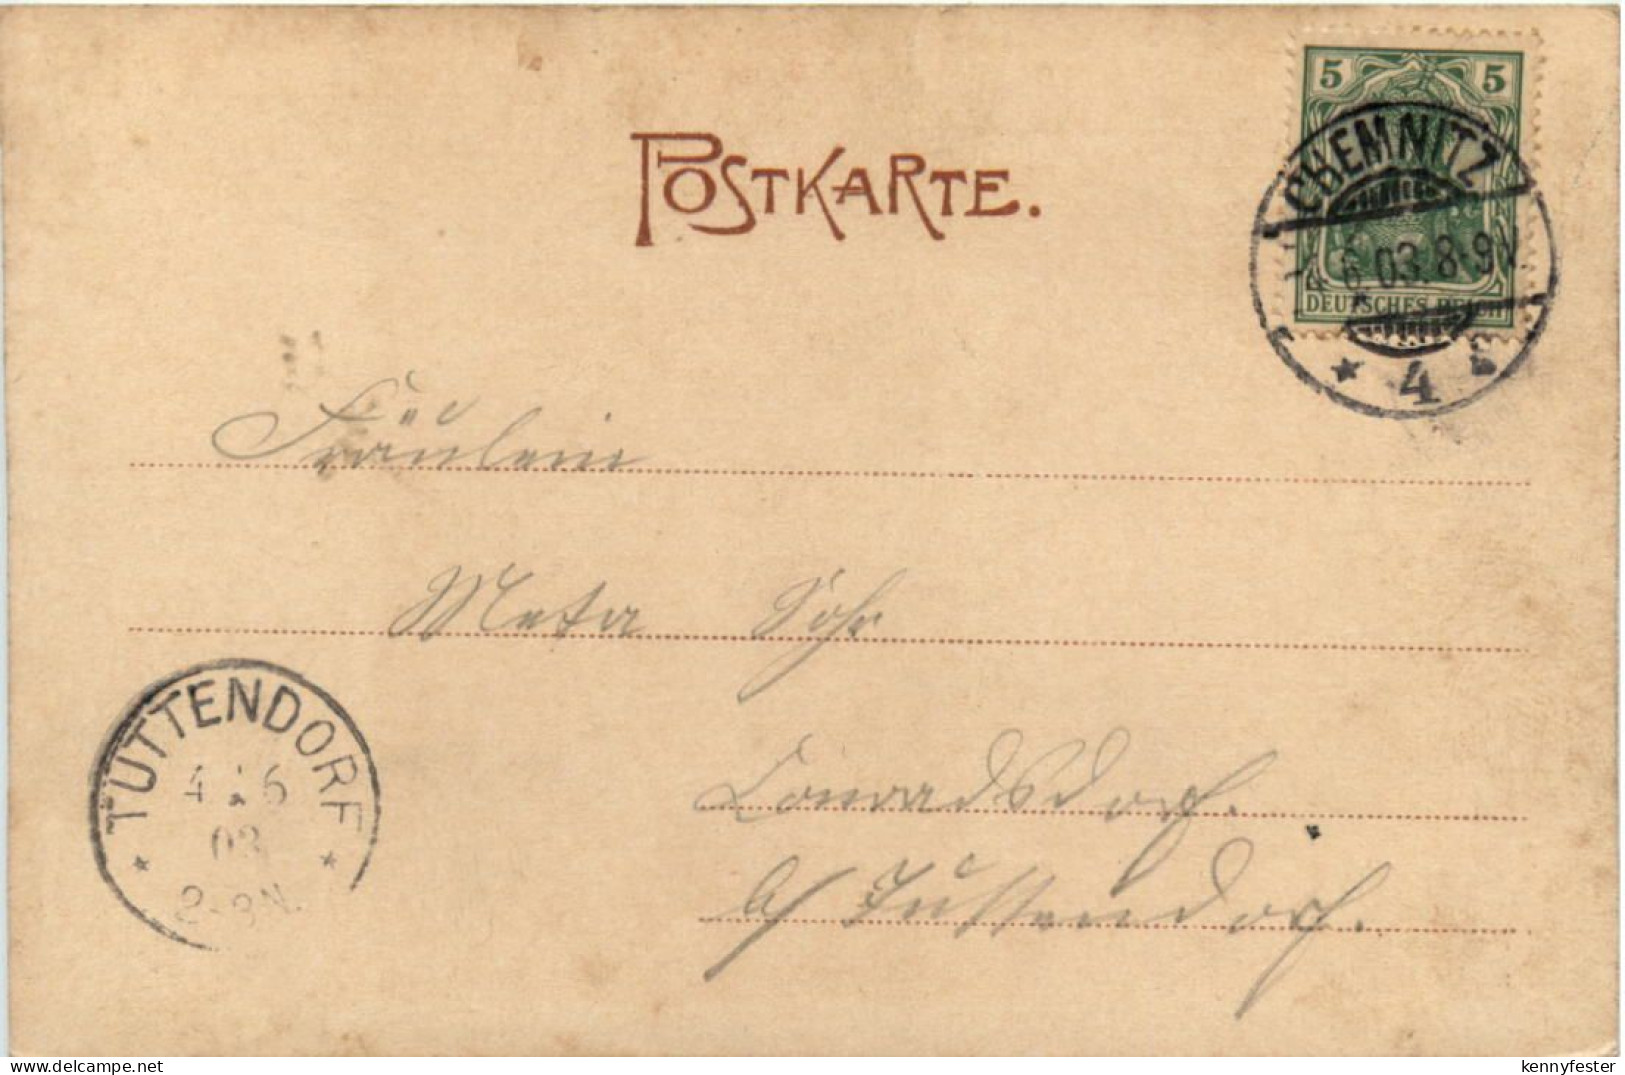 POSTKARTE.
5 5
CHEMNITZ
4.6.03.8-9V.
DEUTSCHES REICH
* 4 *
Fräulein
Meta Sohr
TUTTENDORF
4 6
03
2-3N.
Conradsdorf.
b/ Tuttendorf.
delcampe.net
kennyfester